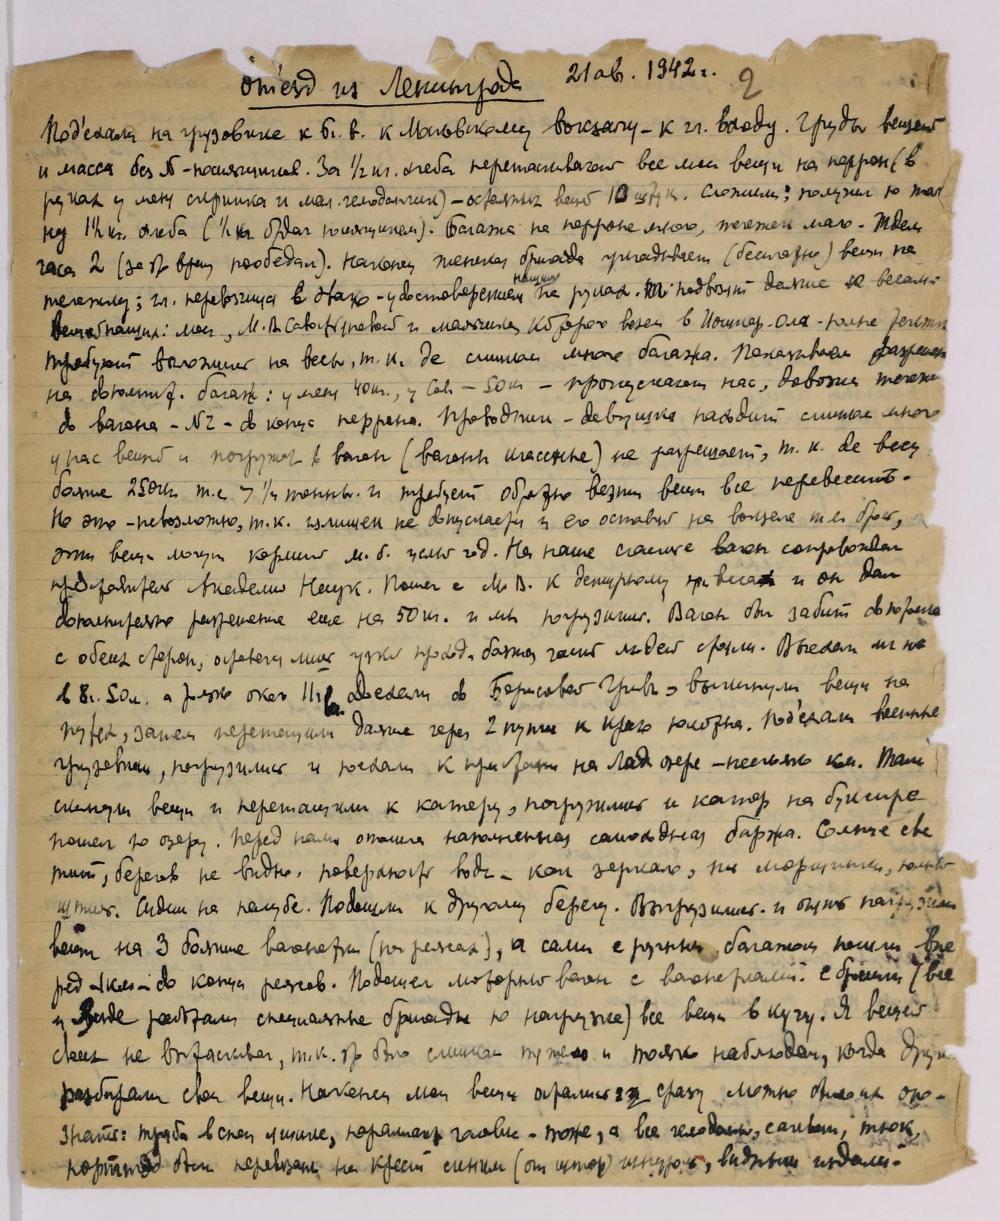 Отъезд из Ленинграда 21 ав. 1942 г. 2
Под'ехали на грузовике к 6 ч. в. к Московскому вокзалу – к гл. входу. Груды вещей
и масса без № - носильщиков. За 1/2 кг. хлеба перетаскивают все мои вещи на перрон (в
руках у меня скрипка и мал. чемоданчик) – остальных вещей 10 штук. Сложили; получил по тал
ну 1 1/2 кг. хлеба (1/2 кг отдал носильщикам). Багажа на перроне много, тележек мало. Ждем
часа 2 (за это время пообедал). Наконец женская бригада укладывает (бесплатно) вещи на
тележку; гл. перевозчица с нашим удостоверением на руках. подвозит далее к весам
вещи наши: мои, М.В. и мальчика которого везем в Йошкар-Ола -
требует выложить на весы, т.к. де слишком много багажа. Показываем разрешен
на дополнит. багаж: у меня 40 кг., у Сав – 50 кг – пропускают нас, довозим тележк
до вагона – №2 – в конце перрона. Проводник – девушка находит слишком много
у нас вещей и погрузить в вагон (вагоны классные) не разрешает, т.к. де весу
больше 250 кг т.е. > 1/4 тонны. и требует обратно везти вещи все перевесить.
Но это – невозможно, т.к. излишек не допускается и его оставят на вокзале т.е. брос,
эти вещи могут кормить м.б. целый год. На наше счастье вагон сопровождал
представитель Академии Наук. Пошел с М.В. к дежурному при весах и он дал
дополнительно разрешение еще на 50 кг. и мы погрузились. Вагон был забит до потолка
с обеих сторон, оставался лишь узкий проход. Выехали мы не
в 8 ч. 50 м. а только около 11 ч. в. доехали до Борисовой Гривы, выкинули вещи на
путях, затем перетащили далее через 2 пути к краю полотна. Под'ехали военные
грузовики, погрузились и поехали к пристани на Лад. озере – несколько км. Там
скинули вещи и перетащили к катеру, погрузились и катер на буксире
пошел по озеру. Перед нами отошла наполненная самоходная баржа. Солнце све
тит, берегов не видно. поверхность воды – как зеркало, ни морщинки, полный
штиль. Сидим на палубе. Подошли к другому берегу. Выгрузились. и опять нагрузили
вещи на 3 большие вагонетки (на рельсах), а сами с ручным багажом пошли впе
ред – 1 км – до конца рельсов. Подошел моторный вагон с вагонетками. Сбросили (все
и везде работали специальные бригады по нагрузке) все вещи в кучу. Я вещей
своих не вытаскивал, т.к. это было слишком тяжело и только наблюдал, когда други
разбирали свои вещи. Наконец мои вещи остались и сразу можно было их опо-
знать: труба в своем чехле, – тоже, а все чемоданы, тюк,
портплед были перевязаны на крест синим (от штор) шнуром, видным издали.